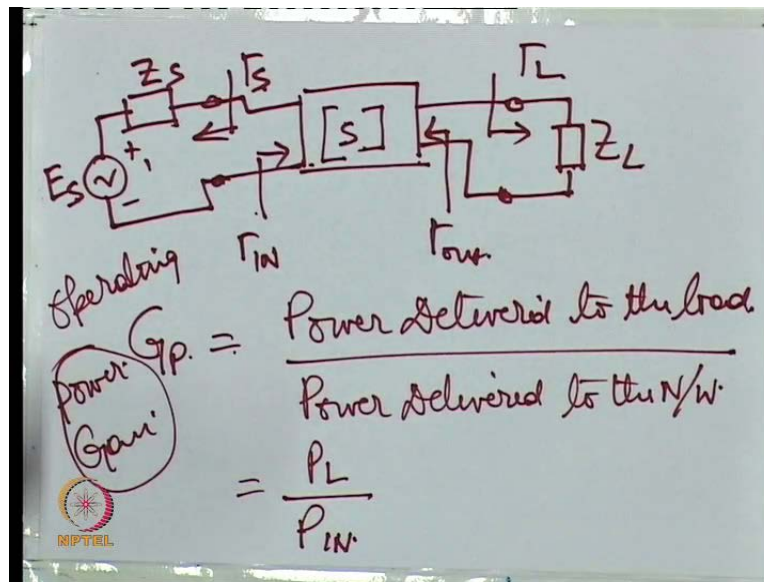 Zs Γs ΓL
Es + - [S] ZL
ΓIN Γout.
operating
Gp. = Power Delivered to the load.
Power Delivered to the N/W.
Power Gain
= PL
PIN.
NPTEL